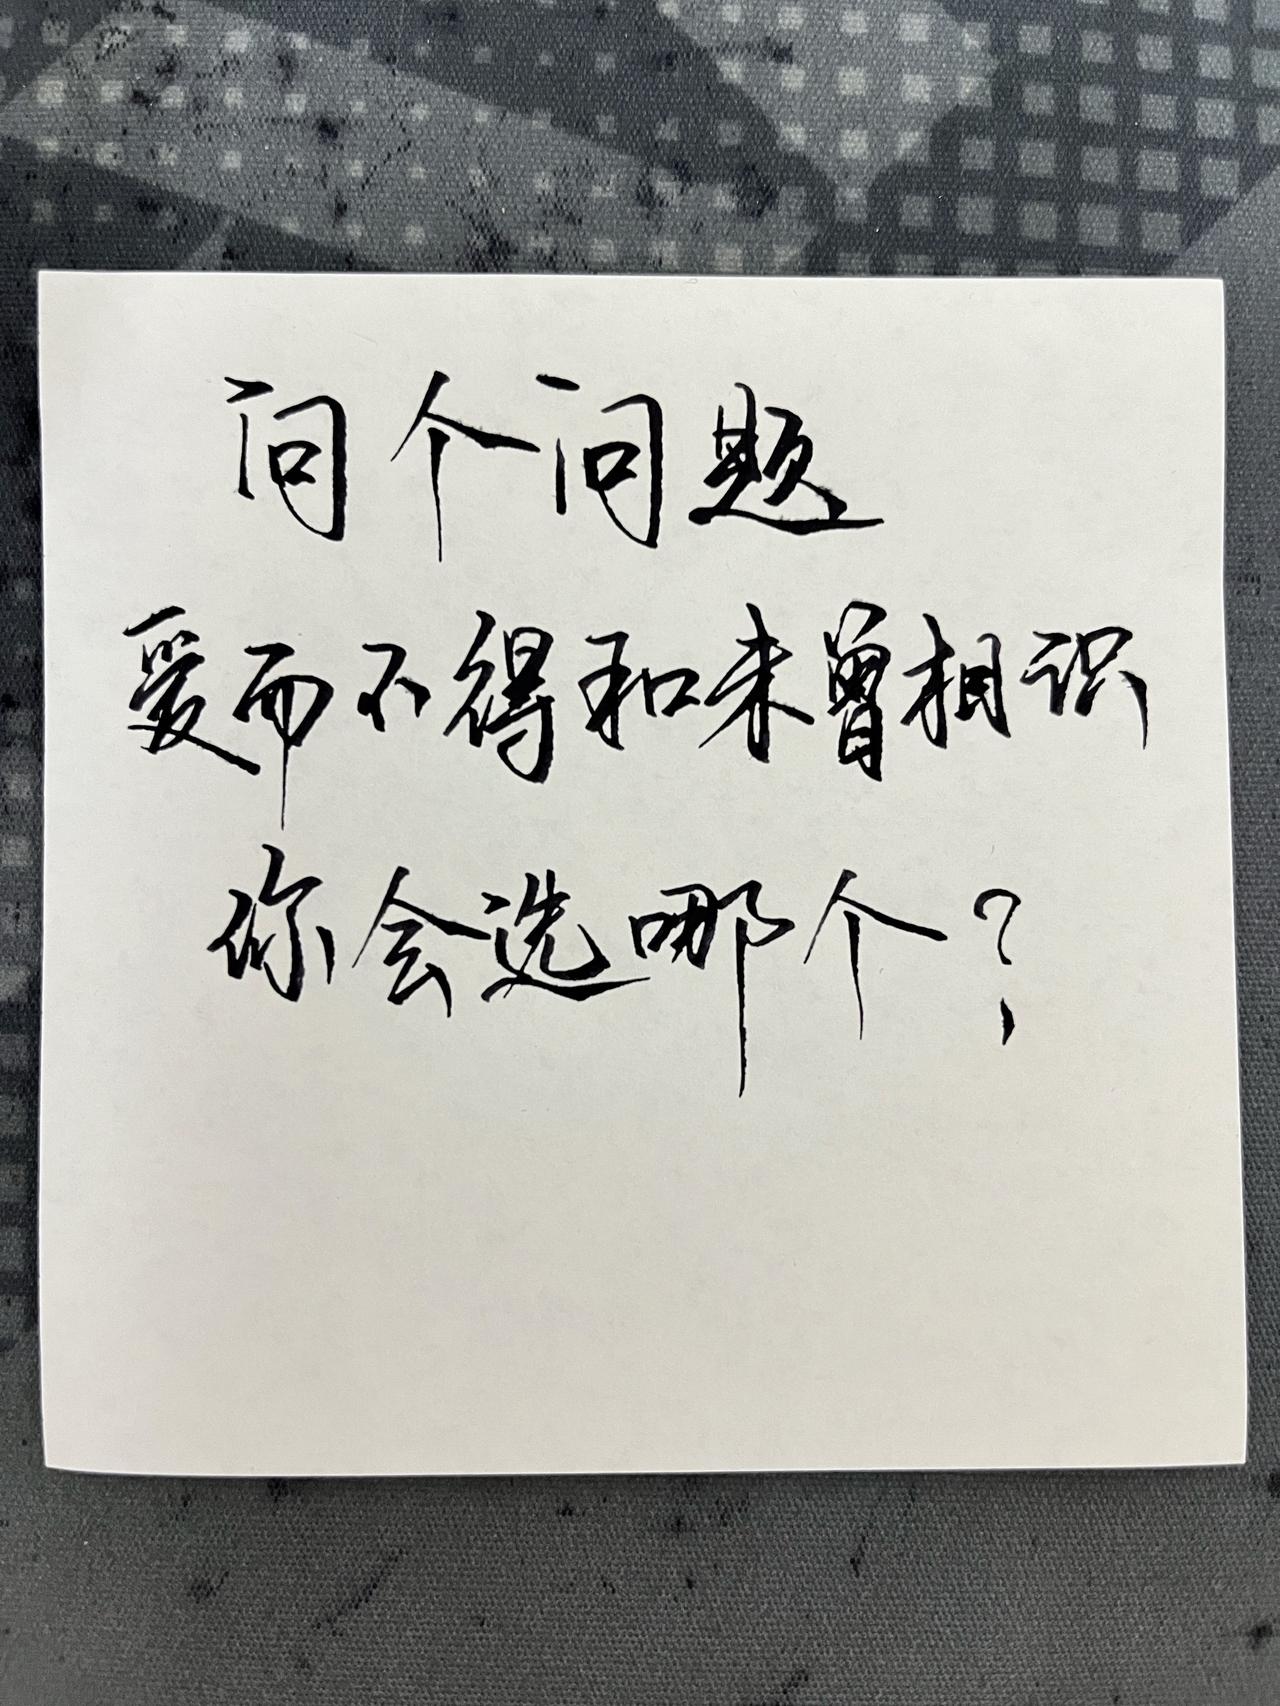 问个问题
爱而不得和未曾相识
你会选哪个？